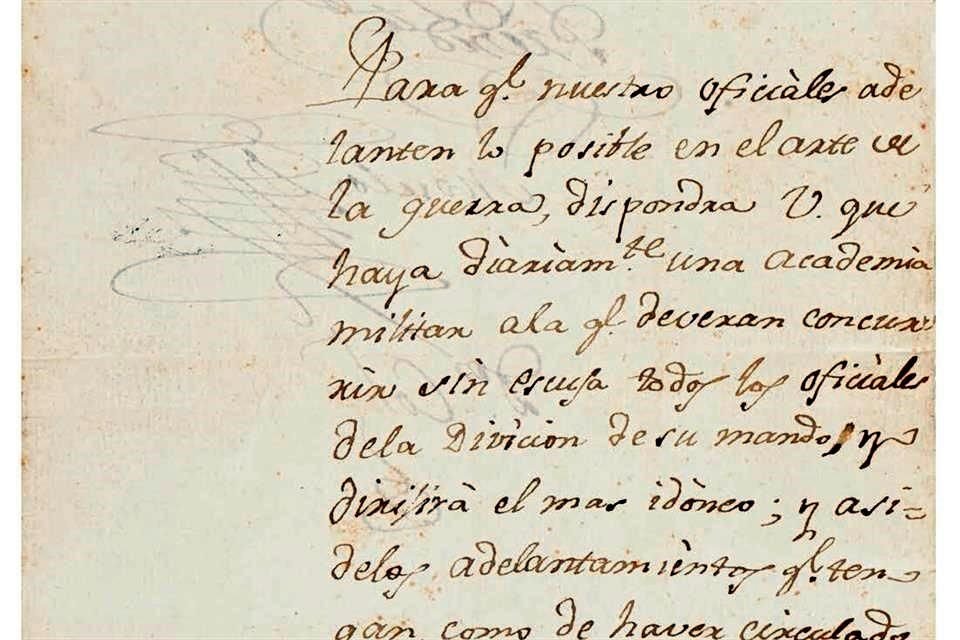 Para q.ͤ nuestro oficiàles ade
lanten lo posible en el arte de
la guerra, dispondra V. que
haya diàriàm.te una academia
militar ala q.ͤ deveran concur
rir sin escusa todos los oficiàles
dela Divicion de su mando, y
dirijirà el mas idòneo; y asi=
delos adelantamièntos q.ͤ ten
gan como de haver circulado